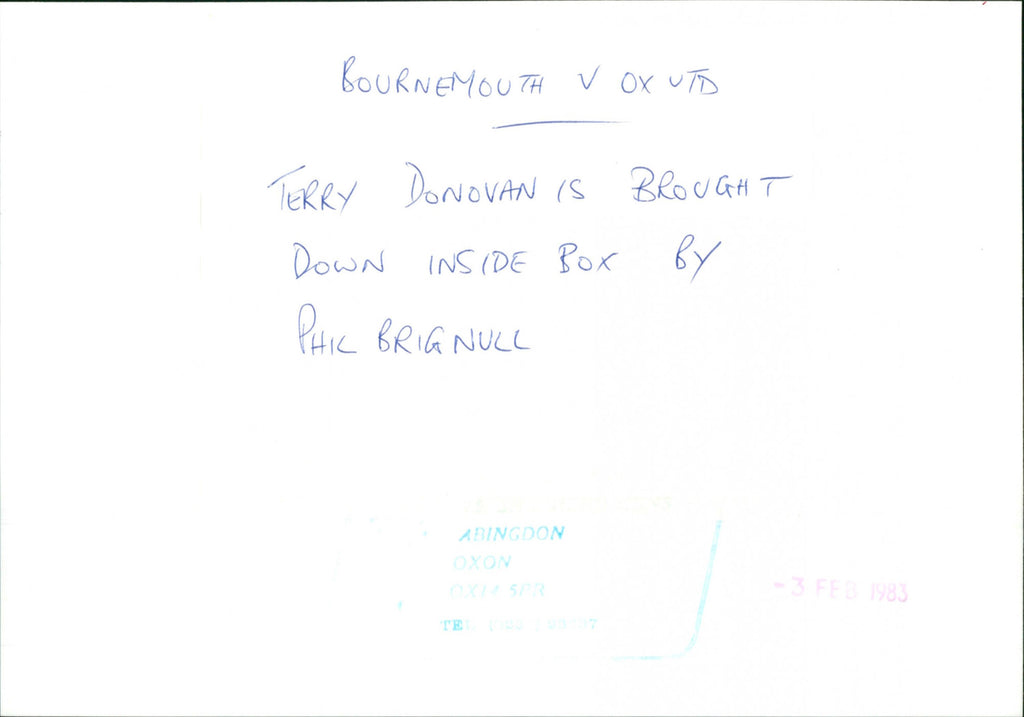 BOURNEMOUTH V OX UTD
TERRY DONOVAN IS BROUGHT
DOWN INSIDE BOX BY
PHIL BRIGNULL
ABINGDON
OXON
-3 FEB 1983